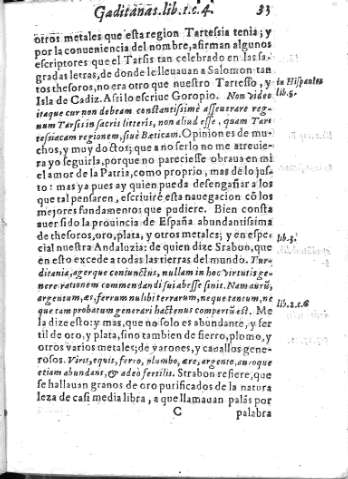 Gaditanas. lib. 1. c. 4. 33
otros metales que esta region Tartessia tenia; y
por la conueniencia del nombre, afirman algunos
escriptores que el Tarsis tan celebrado en las sa-
gradas letras, de donde le lleuauan a Salomon tan
tos thesoros, no era otro que nuestro Tartesso, y
Isla de Cadiz. Assi lo escriue Goropio. Non video
in Hispanica
lib. 5.
itaque cur non debeam constantissimè asseuerare reg-
num Tarsis in sacris litteris, non aliud esse, quam Tar-
tessiacam regionem, siuè Bæticam. Opiniones de mu-
chos, y muy doctos; que a no serlo no me atreuie-
ra yo seguirla, porque no pareciesse obraua en mi
el amor de la Patria, como proprio, mas dè lo jus-
to: mas ya pues ay quien pueda desengañar a los
que tal pensaren, escriuirè esta nauegacion cõ los
mejores fundamentos que pudiere. Bien consta
auer sido la prouincia de España abundantissima
de thesoros, oro, plata, y otros metales; y en espe-
cial nuestra Andaluzia: de quien dize Strabon, que
lib. 3.
en esto excede a todas las tierras del mundo. Tur-
ditania, ager que coniunctus, nullam in hoc virtutis ge-
nere rationem commendandi sui abesse sinit. Nam aurũ,
argentum, æs, ferrum nulibi terrarum, neque tensum, ne
lib. 2. c. 6
que tam probatum generari hactenus compertũ est. Me
la dize esto: y mas, que no solo es abundante, y fer
til de oro, y plata, sino tambien de fierro, plomo, y
otros varios metales; de varones, y cauallos gene-
rosos. Viris, equis, ferro, plumbo, ære, argento, auroque
etiam abundans, & adeò fertilis. Strabon refiere, que
se hallauan granos de oro purificados de la natura
leza de casi media libra, a que llamauan palàs por
C palabra